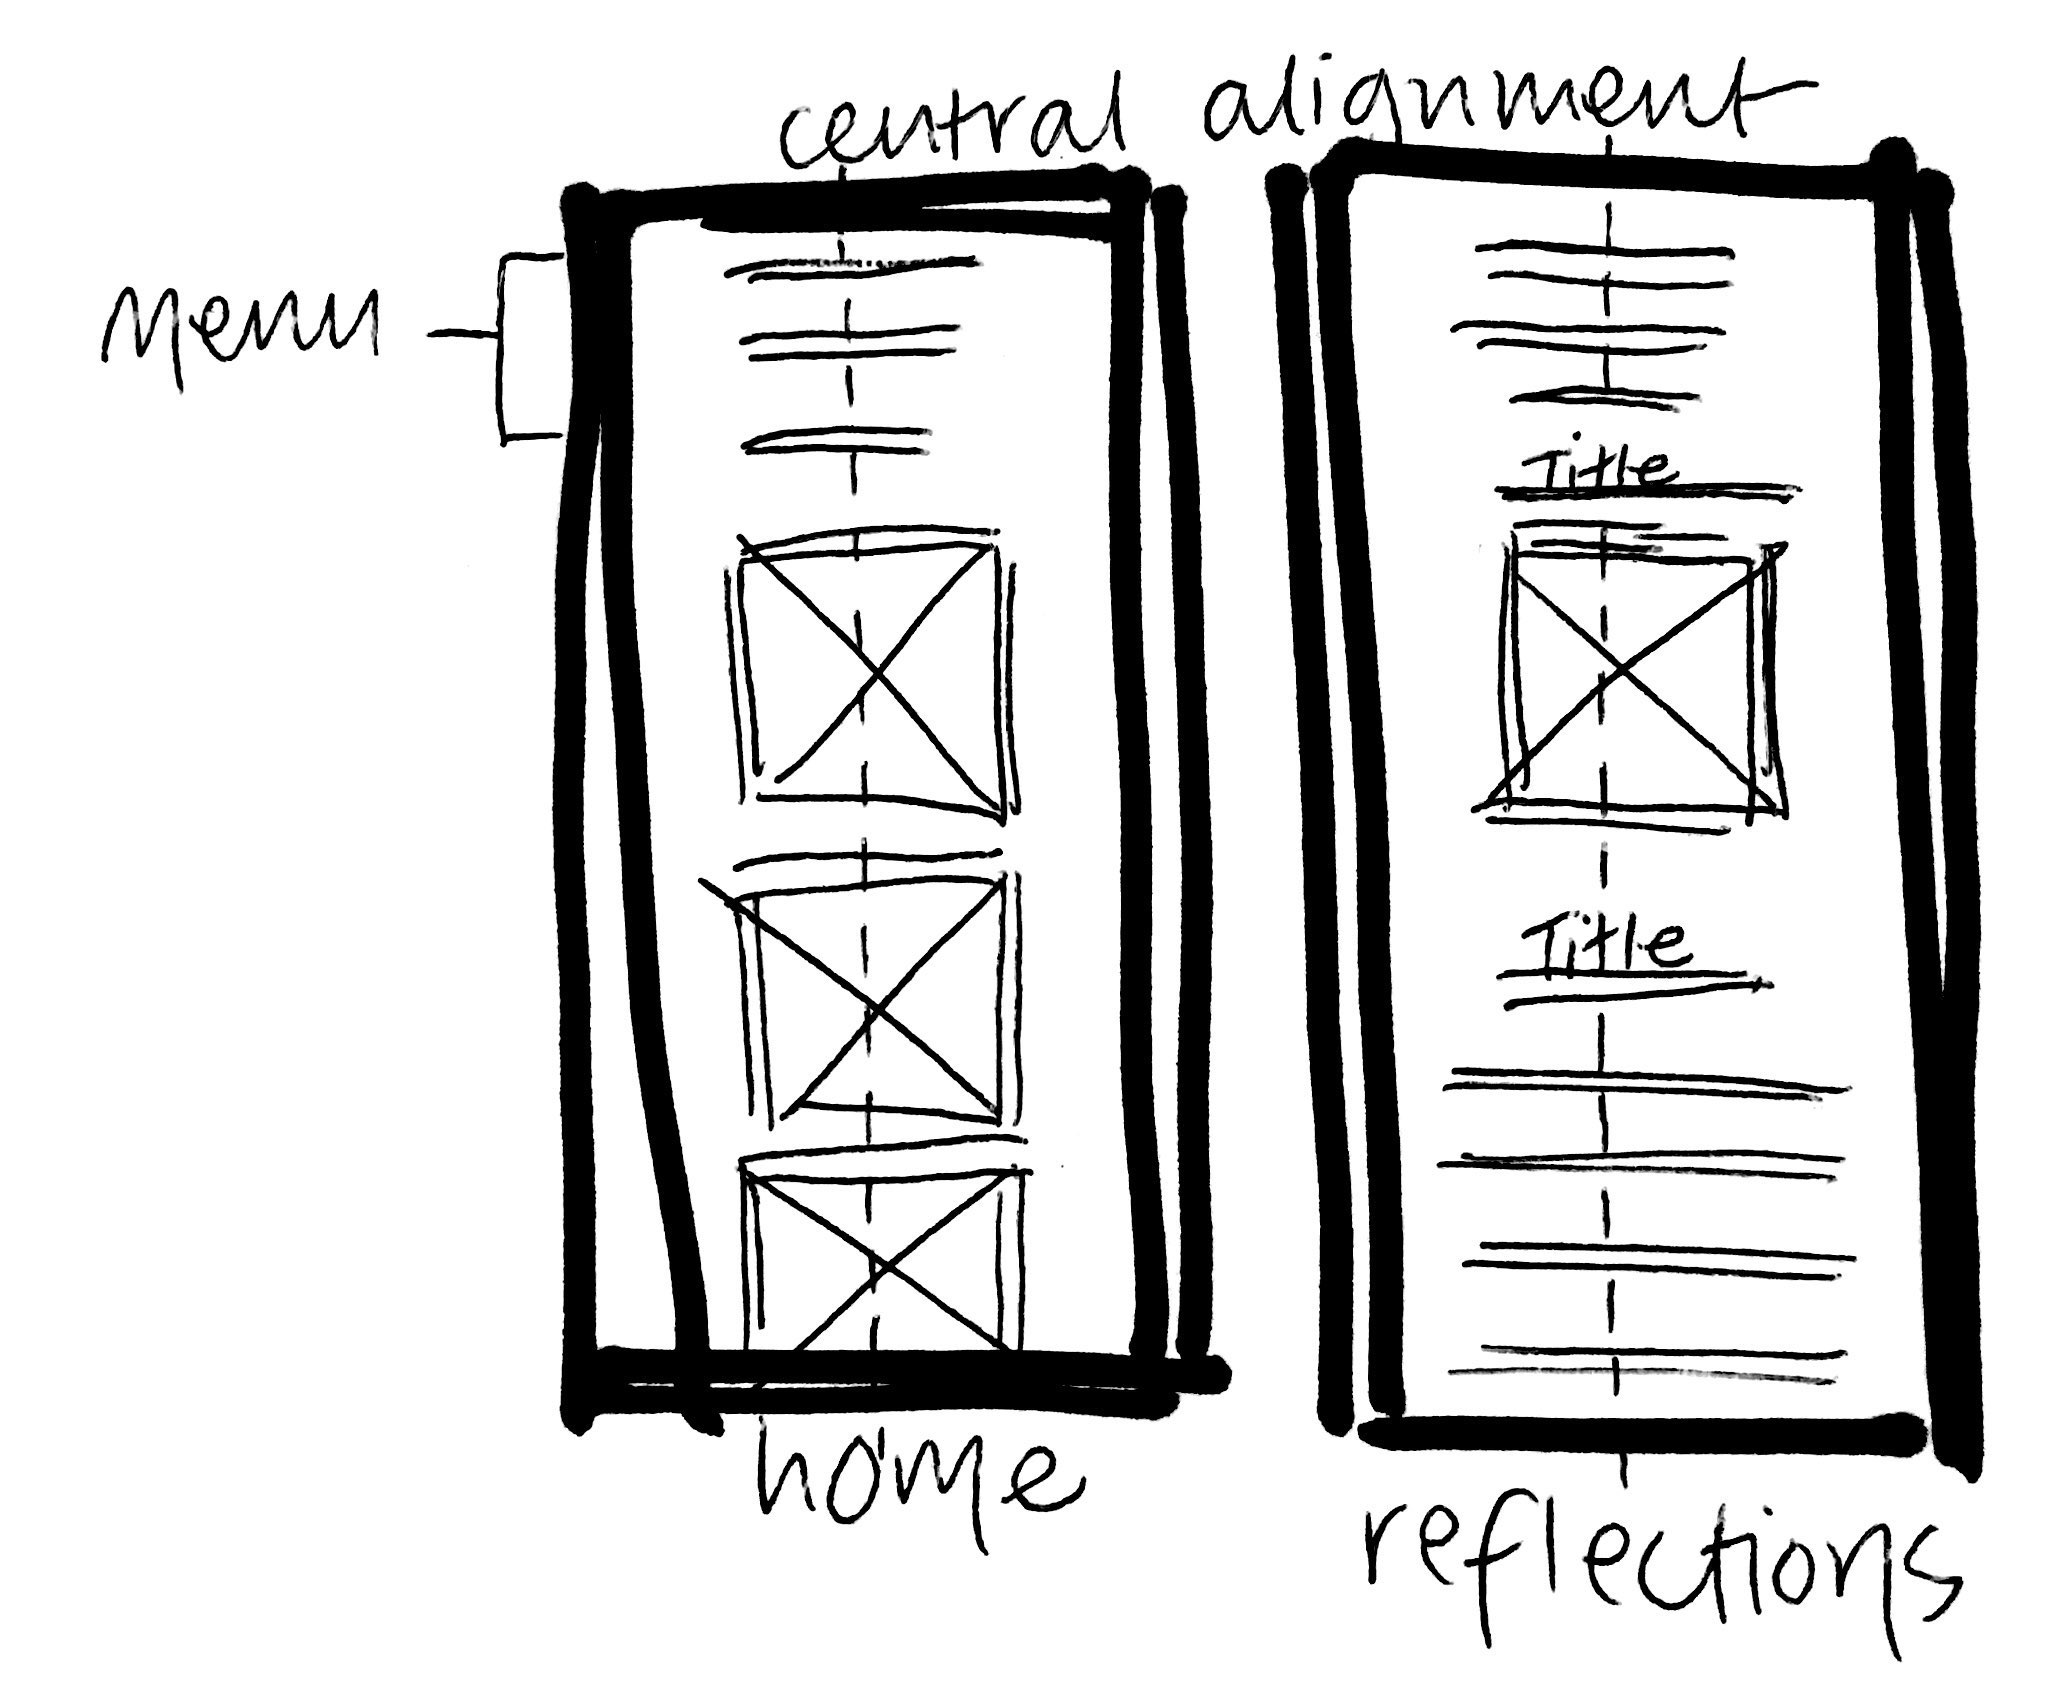 central alignment
Menu
Title
Title
home
reflections